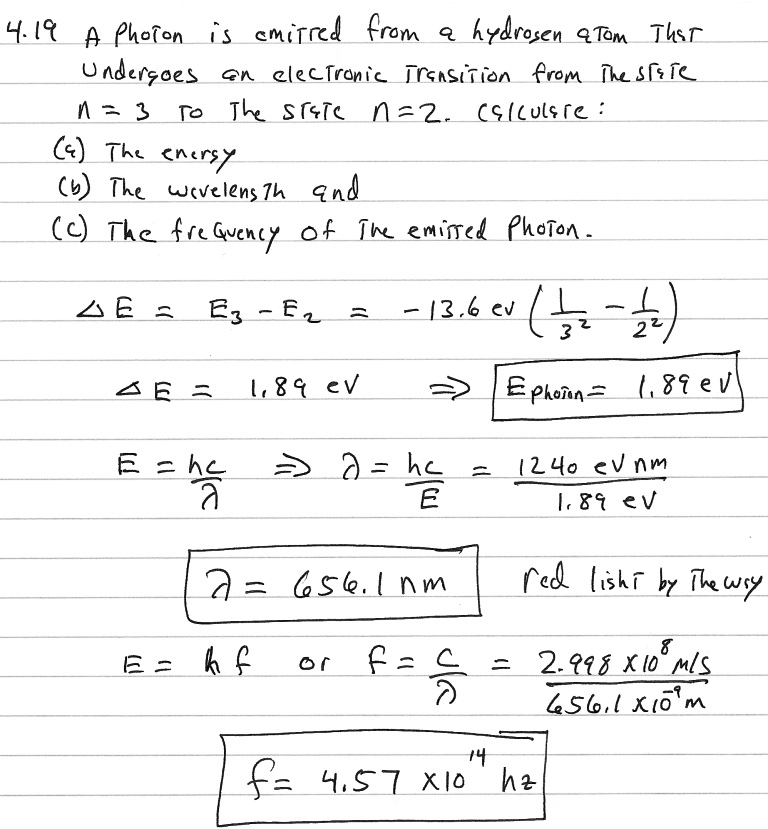 4.19 A photon is emitted from a hydrogen atom that
undergoes an electronic transition from the state
n = 3 to the state n = 2. Calculate :
(a) The energy
(b) The wavelength and
(c) The frequency of the emitted photon.
ΔE = E₃ - E₂ = -13.6 eV (1/3² - 1/2²)
ΔE = 1.89 eV ⇒ E photon = 1.89 eV
E = hc/λ ⇒ λ = hc/E = 1240 eV nm / 1.89 eV
λ = 656.1 nm red light by the way
E = hf or f = c/λ = 2.998 x 10⁸ m/s / 656.1 x 10⁻⁹ m
f = 4.57 x 10¹⁴ hz